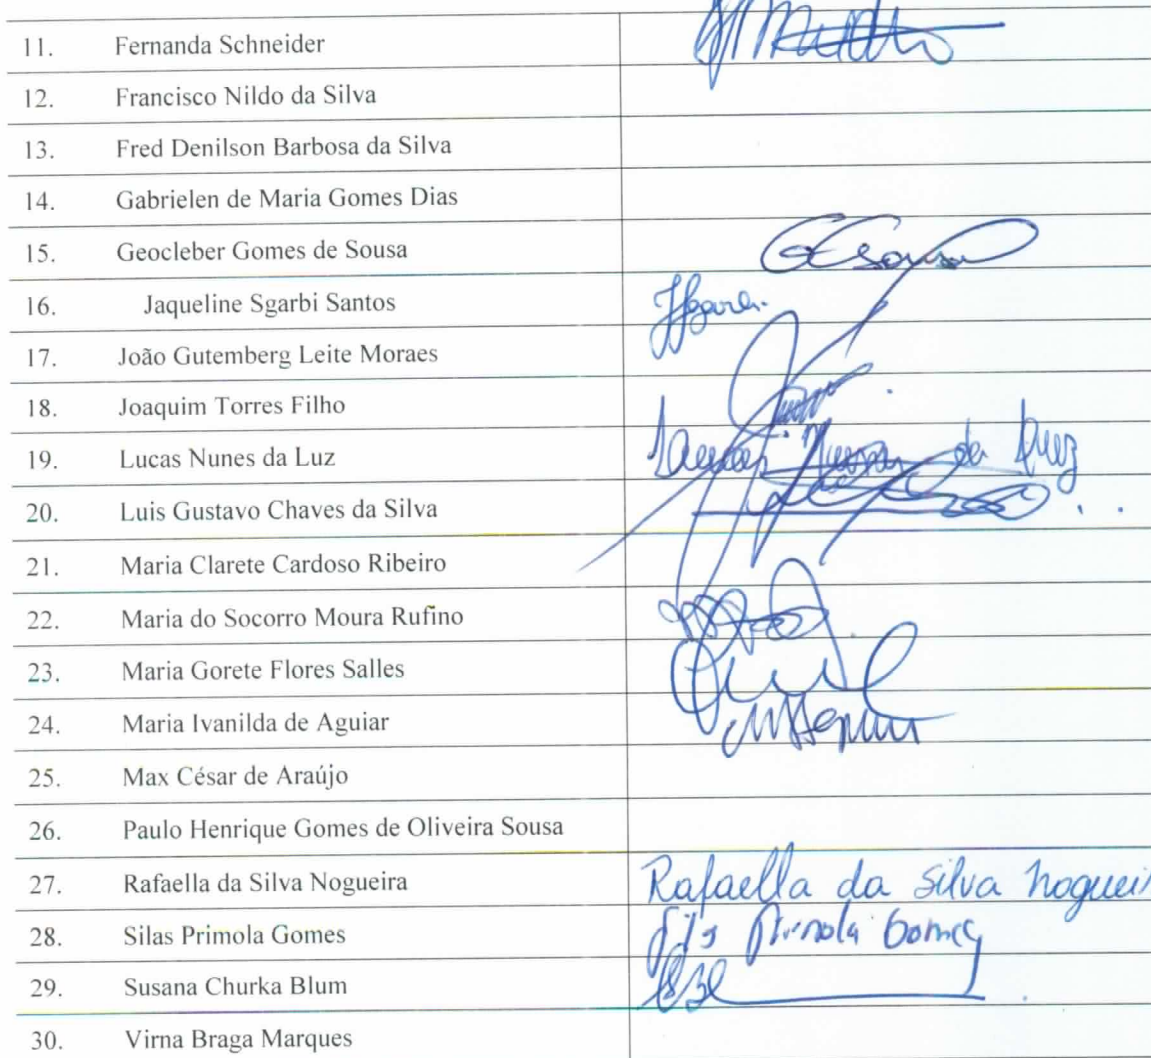 11. Fernanda Schneider
12. Francisco Nildo da Silva
13. Fred Denilson Barbosa da Silva
14. Gabrielen de Maria Gomes Dias
15. Geocleber Gomes de Sousa
16. Jaqueline Sgarbi Santos
17. João Gutemberg Leite Moraes
18. Joaquim Torres Filho
19. Lucas Nunes da Luz Lucas Nunes da Luz
20. Luis Gustavo Chaves da Silva
21. Maria Clarete Cardoso Ribeiro
22. Maria do Socorro Moura Rufino
23. Maria Gorete Flores Salles
24. Maria Ivanilda de Aguiar
25. Max César de Araújo
26. Paulo Henrique Gomes de Oliveira Sousa
27. Rafaella da Silva Nogueira Rafaella da Silva Nogueir
28. Silas Primola Gomes Primola Gomes
29. Susana Churka Blum
30. Virna Braga Marques